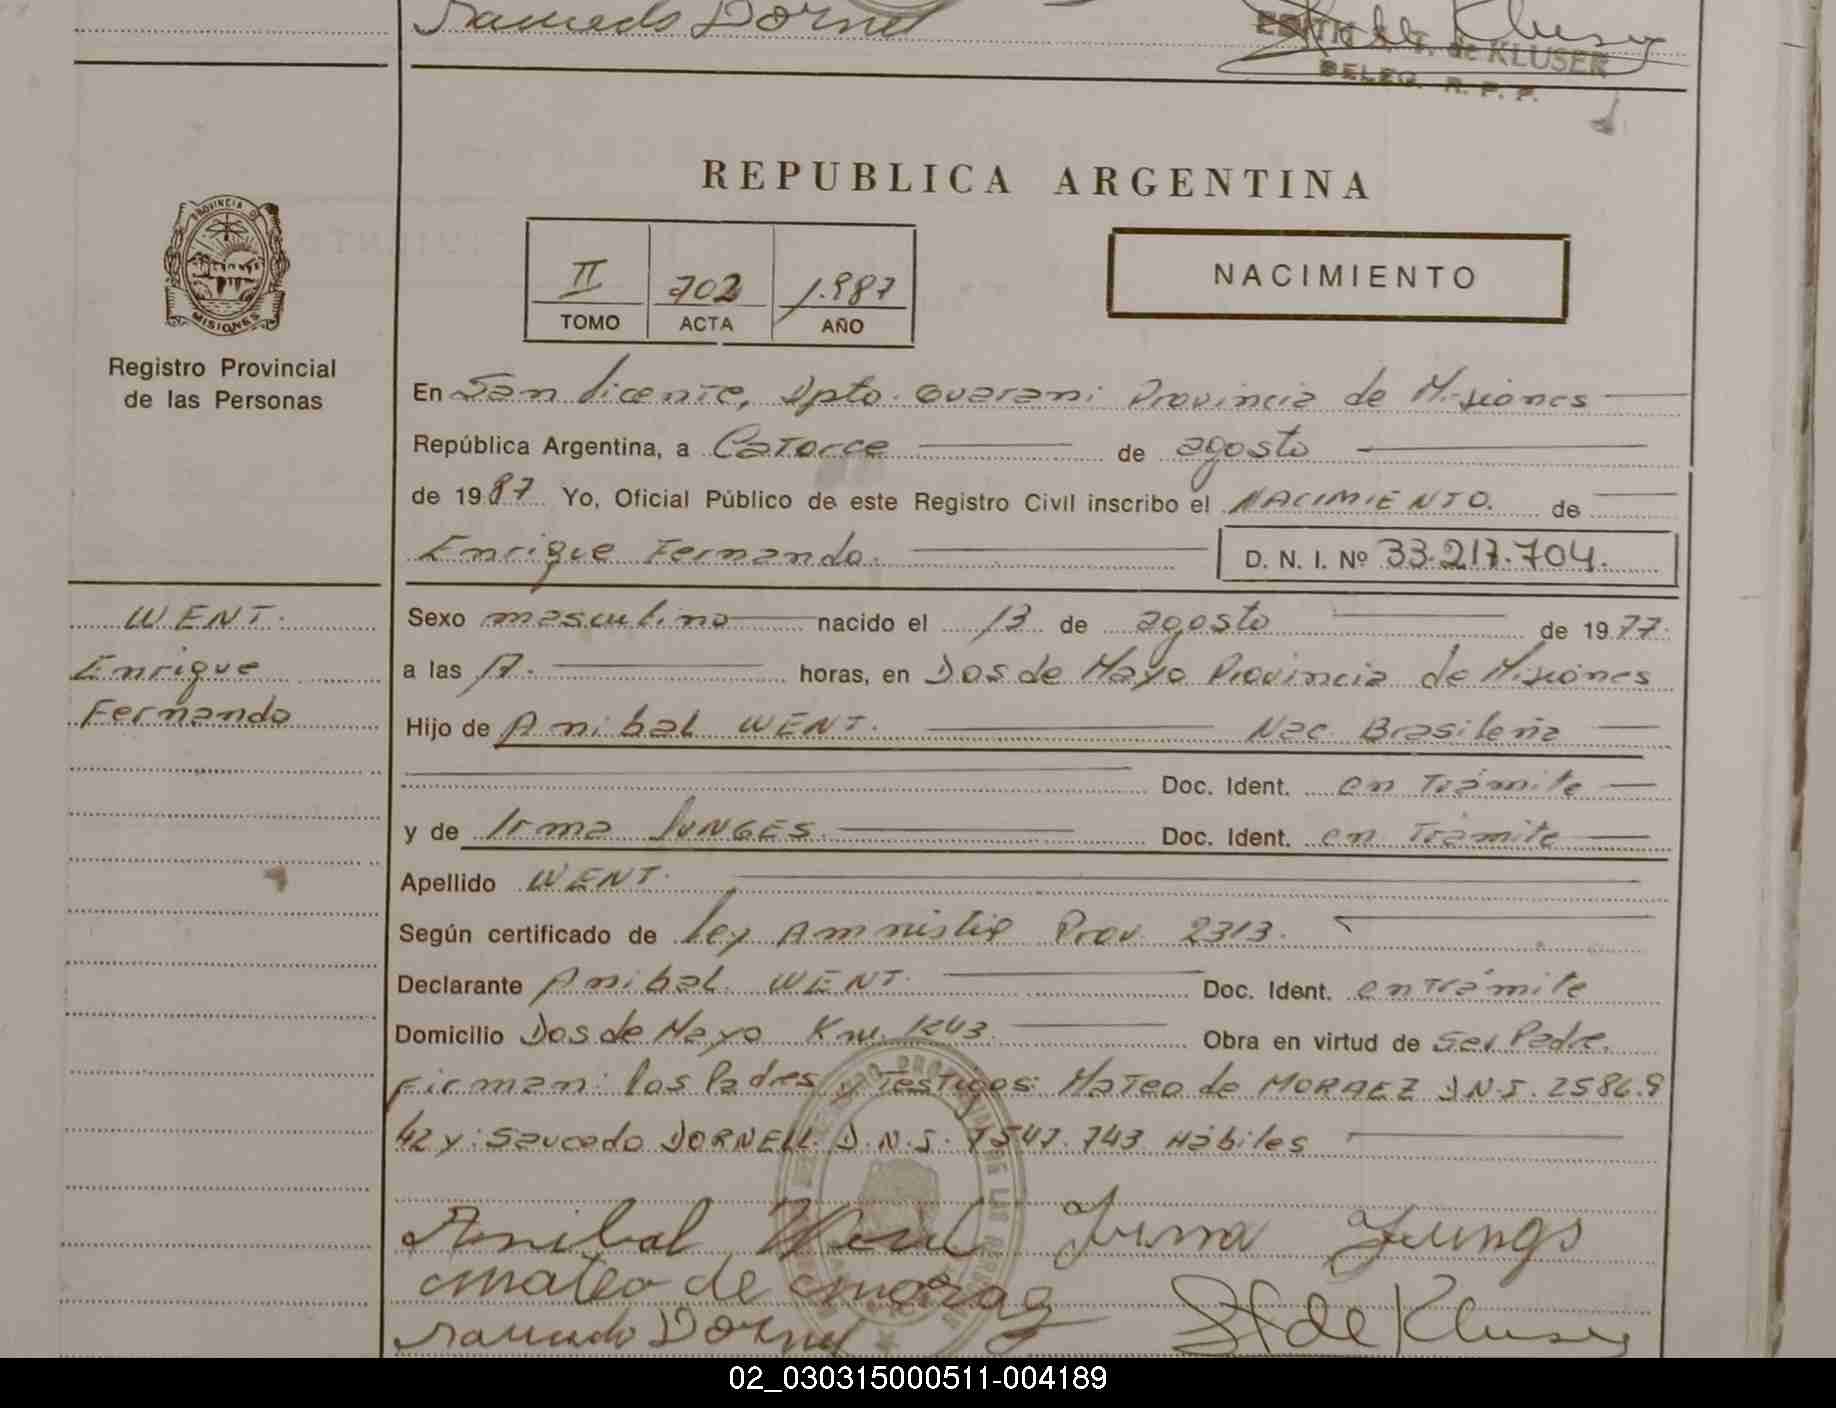 Saucedo Dornel
EDITH S. T. de KLUSER
DELEG. R. P. P.
REPUBLICA ARGENTINA
PROVINCIA DE
MISIONES
Registro Provincial
de las Personas
II 702 1.987
TOMO ACTA AÑO
NACIMIENTO
En San Vicente, Dpto. Guarani Provincia de Misiones
República Argentina, a Catorce de agosto
de 1987 Yo, Oficial Público de este Registro Civil inscribo el NACIMIENTO. de
Enrique Fernando. D. N. I. Nº 33.217.704.
WENT.
Enrique
Fernando
Sexo masculino nacido el 13 de agosto de 1977.
a las 17. horas, en Dos de Mayo Provincia de Misiones
Hijo de Anibal WENT. Nac. Brasileña
Doc. Ident. en Trámite
y de Irma JUNGES. Doc. Ident. en Trámite
Apellido WENT.
Según certificado de Ley Amnistia Prov. 2313.
Declarante Anibal WENT. Doc. Ident. en trámite
Domicilio Dos de Mayo Km. 1243. Obra en virtud de Ser Padre.
Firman: los Padres y Testigos: Mateo de MORAEZ D.N.I. 2586.9
42 y: Saucedo DORNELL. D.N.I. 7547.743 Hábiles
Anibal Went Irma Jungs
mateo de moraez
Saucedo Dornel de Kluser
02_030315000511-004189